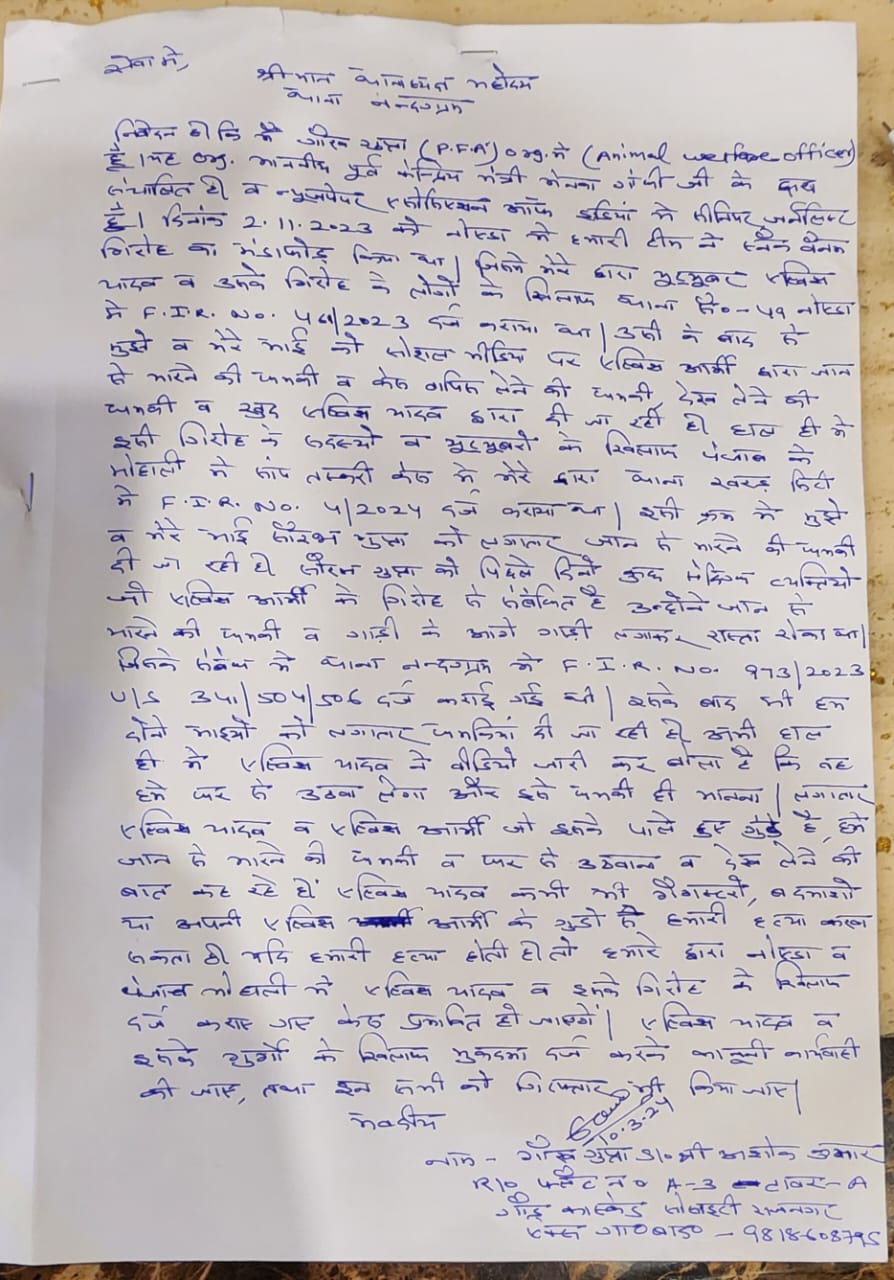 सेवा में,
श्रीमान थानाध्यक्ष महोदय
थाना नन्दग्राम
निवेदन है कि मैं गौरव गुप्ता (P.F.A) org. में (Animal welfare officer)
हूँ। यह org. माननीय पूर्व केन्द्रिय मंत्री मेनका गांधी जी के द्वारा
संचालित है व न्यूजपेपर एसोसिएशन ऑफ इंडिया में सीनियर जर्नलिस्ट
है। दिनांक 2.11.2023 को नोएडा में हमारी टीम ने स्नैक वैनम
गिरोह का भंडाफोड़ किया था। जिसमे मेरे द्वारा यूट्यूबर एल्विश
यादव व उसके गिरोह के लोगों के खिलाफ थाना सै०-49 नोएडा
मे F.I.R. No. 461/2023 दर्ज कराया था। उसी के बाद से
मुझे व मेरे भाई को सोशल मीडिया पर एल्विश आर्मी द्वारा जान
से मारने की धमकी व केस वापिस लेने की धमकी, देख लेने की
धमकी व खुद एल्विश यादव द्वारा दी जा रही है। हाल ही में
इसी गिरोह के सदस्यो व यूट्यूबरो के खिलाफ पंजाब के
मोहाली में सांप तस्करी केस मे मेरे द्वारा थाना खरड़ सिटी
मे F.I.R. No. 4/2024 दर्ज कराया था। इसी क्रम मे मुझे
व मेरे भाई सौरभ गुप्ता को लगातार जान से मारने की धमकी
दी जा रही है। सौरभ गुप्ता को पिछले दिनो कुछ संदिग्ध व्यक्तियो
जो एल्विश आर्मी के गिरोह से संबंधित है उन्होंने जान से
मारने की धमकी व गाड़ी के आगे गाड़ी लगाकर रास्ता रोका था।
जिसके संबंध मे थाना नन्दग्राम मे F.I.R. No. 973/2023
U/S 341/504/506 दर्ज कराई गई थी। इसके बाद भी हम
दोनो भाइयो को लगातार धमकियां दी जा रही है। अभी हाल
ही मे एल्विश यादव ने वीडियो जारी कर बोला है कि वह
हमे घर से उठवा लेगा और इसे धमकी ही मानना। लगातार
एल्विश यादव व एल्विश आर्मी जो इसके पाले हुए गुंडे है, हमे
जान से मारने की धमकी व घर से उठवाने व देख लेने की
बात कह रहे हैं। एल्विश यादव कभी भी गैंगस्टरो, बदमाशो
या अपनी एल्विश आर्मी के गुंडो से हमारी हत्या करवा
सकता है। यदि हमारी हत्या होती है तो हमारे द्वारा नोएडा व
पंजाब मोहाली में एल्विश यादव व इसके गिरोह के खिलाफ
दर्ज कराए गए केस प्रभावित हो जाएगें। एल्विश यादव व
इसके गुर्गो के खिलाफ मुकदमा दर्ज करके कानूनी कार्यवाही
की जाए, तथा इन सभी को गिरफ्तार भी किया जाए।
भवदीय
10.3.24
नाम - गौरव गुप्ता S/o श्री अशोक कुमार
R/o फ्लैट न० A-3 टावर-A
गौड़ कास्केड सोसाइटी राजनगर
एक्स० गा०बाद - 9818608795